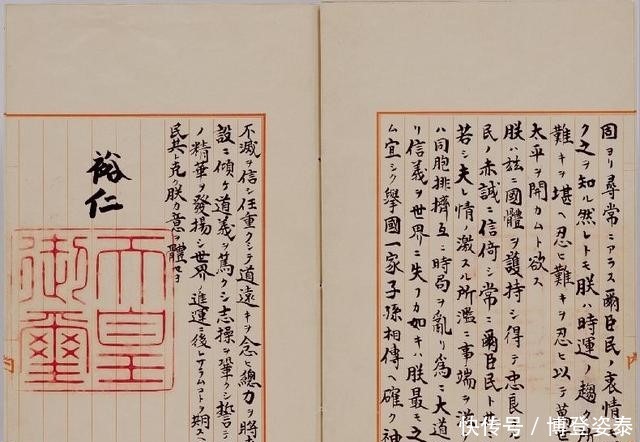 固ヨリ尋常ニアラス爾臣民ノ衷情
ク之ヲ知ル然レトモ朕ハ時運ノ趨ク
難キヲ堪ヘ忍ヒ難キヲ忍ヒ以テ萬
太平ヲ開カムト欲ス
朕ハ茲ニ國體ヲ護持シ得テ忠良
民ノ赤誠ニ信倚シ常ニ爾臣民ト
若シ夫レ情ノ激スル所濫ニ事端ヲ
ハ同胞排擠互ニ時局ヲ亂リ為ニ大道
リ信義ヲ世界ニ失フカ如キハ朕最モ之
ム宜シク擧國一家子孫相傳ヘ確ク神
不滅ヲ信シ任重クシテ道遠キヲ念ヒ總力ヲ將
設ニ傾ケ道義ヲ篤クシ志操ヲ鞏クシ誓テ
ノ精華ヲ發揚シ世界ノ進運ニ後レサラムコトヲ期スヘ
民其レ克ク朕カ意ヲ體セヨ
裕仁
天皇
御璽
快传号/博登姿泰